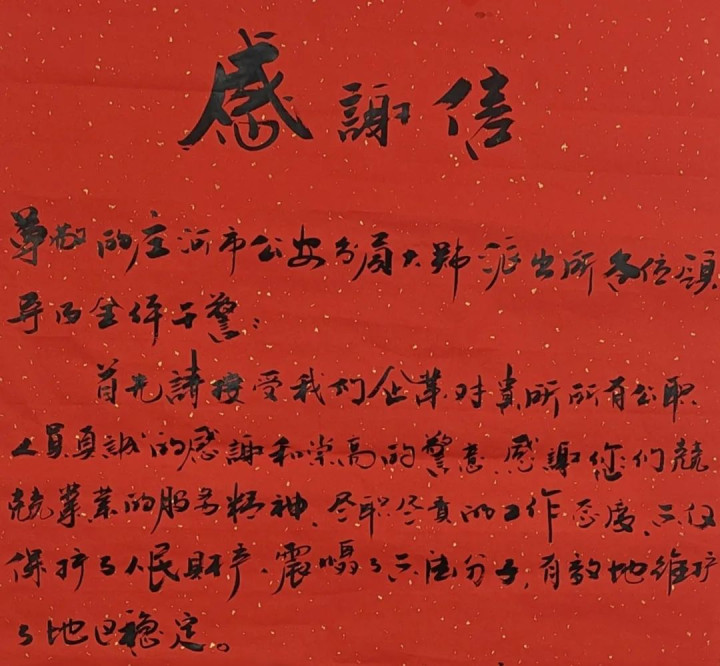 感謝信
尊敬的庄河市公安分局大郑派出所各位領
导及全体干警：
首先請接受我们企業对貴所所有公职
人員真誠的感謝和崇高的警意，感謝您们兢
兢業業的服务精神、尽职尽責的工作态度、不仅
保护了人民財产、震懾了不法分子，有效地維护
了地区穩定。